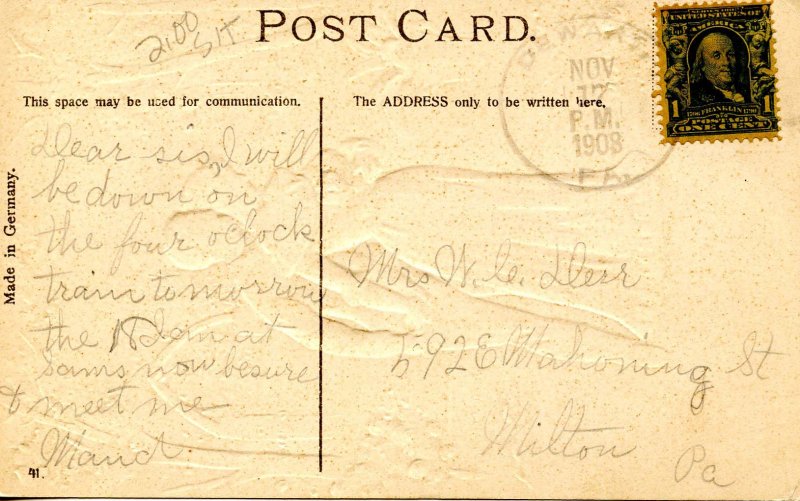 2.00
POST CARD.
NOV
17
P.M.
1908
UNITED STATES OF
AMERICA
1 1
1706 FRANKLIN 1790
POSTAGE
ONE CENT
This space may be used for communication.
The ADDRESS only to be written here.
Made in Germany.
Dear sis, I will
be down on
the four oclock
train tomorrow
the 18 I am at
sams now be sure
& meet me
Maud
41.
Mrs W. C. Derr
592 E Mahoning St
Milton
Pa